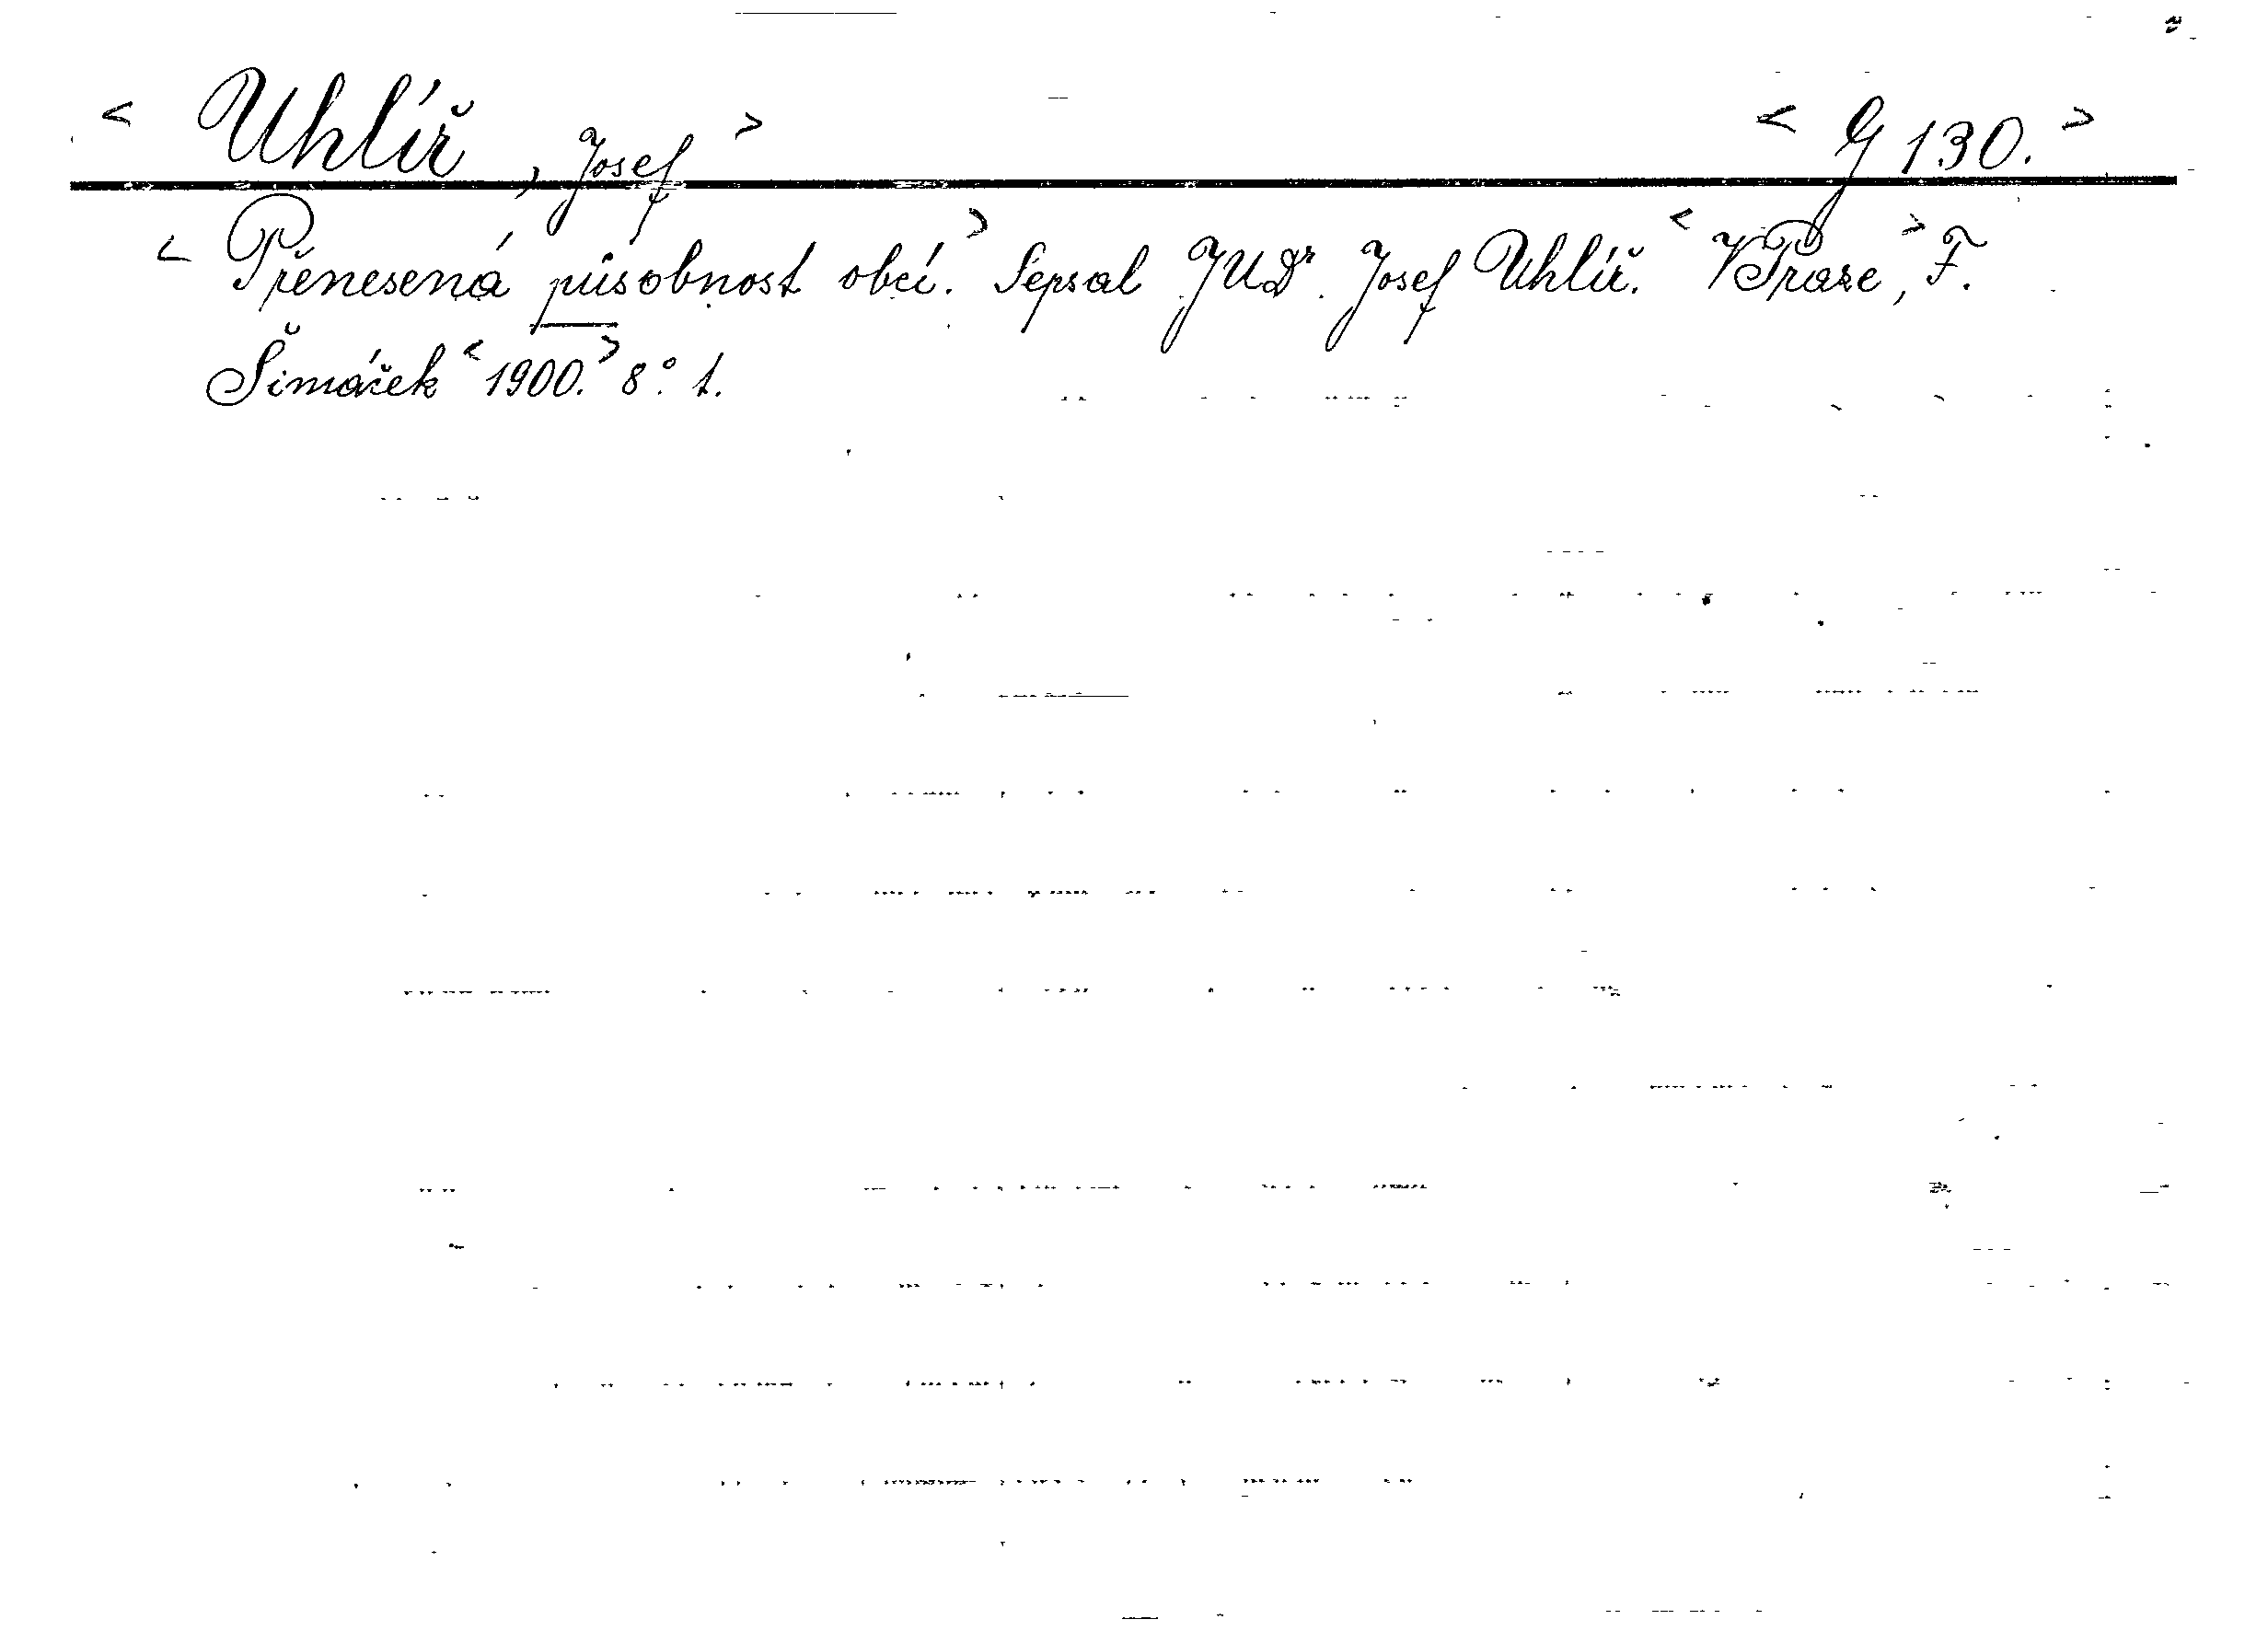 < Uhlíř, Josef > < G 130. >
< Přenesená působnost obcí. > Sepsal JUDr. Josef Uhlíř. < V Praze, > F.
Šimáček < 1900. > 8°. 1.